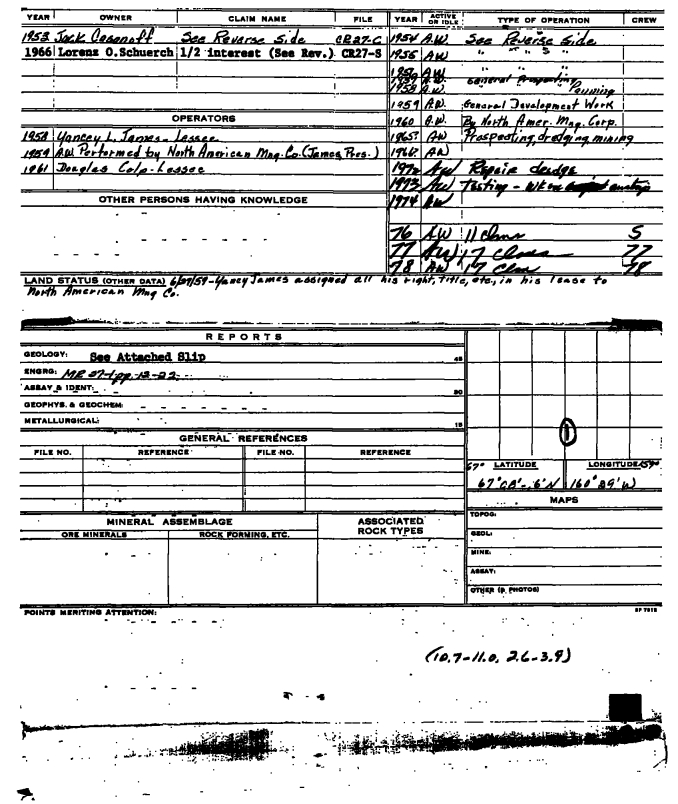 YEAR OWNER CLAIM NAME FILE YEAR ACTIVE OR IDLE TYPE OF OPERATION CREW
1953 Jack See Reverse Side CR27-C 1954 A.W. See Reverse Side
1966 Lorenz O.Schuerch 1/2 interest (See Rev.) CR27-S 1955 AW " " "
1956 AW " "
AW General Prospecting
1958 A.W. Panning
1959 A.W. General Development Work
OPERATORS 1960 A.W. By North Amer. Mng. Corp.
1958 Yancey L. James - Lessee 1965 AW Prospecting, dredging, mining
1959 A.W. Performed by North American Mng. Co. (James, Pres.) 1966 AW
1961 Douglas Colp - Lessee 1972 AW Repair dredge
1973 AW Testing -
OTHER PERSONS HAVING KNOWLEDGE 1974 AW
76 AW 11 Clms 5
77 AW 17 Clms 77
78 AW 17 Clm 78
LAND STATUS (OTHER DATA) 6/27/59 - Yancey James assigned all his right, title, etc., in his lease to
North American Mng Co.
REPORTS
GEOLOGY: See Attached Slip 45
ENGRG: MR 27-1 pp. 12-22
ASSAY & IDENT: 30
GEOPHYS. & GEOCHEM:
METALLURGICAL: 15
1
GENERAL REFERENCES
FILE NO. REFERENCE FILE NO. REFERENCE
67° LATITUDE LONGITUDE 159°
67° .6'N 160° W
MAPS
TOPOG:
MINERAL ASSEMBLAGE ASSOCIATED ROCK TYPES
ORE MINERALS ROCK FORMING, ETC.
GEOL:
MINE:
ASSAY:
OTHER (& PHOTOS)
POINTS MERITING ATTENTION:
(10.7-11.0, 2.6-3.9)